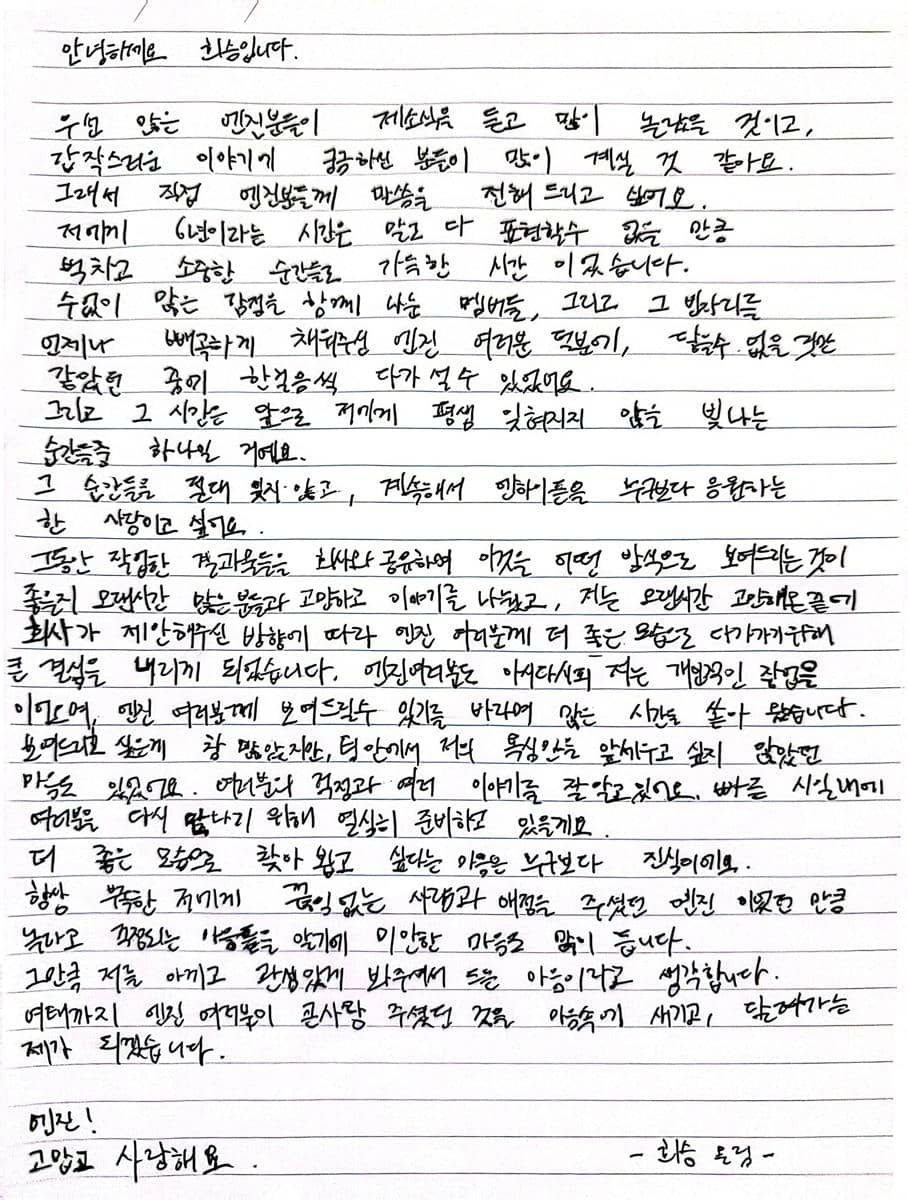 안녕하세요 희승입니다.
우선 많은 엔진분들이 제소식을 듣고 많이 놀랐을 것이고,
갑작스러운 이야기에 궁금하신 분들이 많이 계실 것 같아요.
그래서 직접 엔진분들께 말씀을 전해 드리고 싶어요.
저에게 6년이라는 시간은 말로 다 표현할수 없을 만큼
벅차고 소중한 순간들로 가득한 시간 이었습니다.
수없이 많은 감정을 함께 나눈 멤버들, 그리고 그 빈자리를
언제나 빼곡하게 채워주신 엔진 여러분 덕분에, 닿을수 없을 것만
같았던 꿈에 한걸음씩 다가 설 수 있었어요.
그리고 그 시간은 앞으로 저에게 평생 잊혀지지 않을 빛나는
순간들중 하나일 거예요.
그 순간들을 절대 잊지 않고, 계속해서 엔하이픈을 누구보다 응원하는
한 사람이고 싶어요.
그동안 작업한 결과물들을 회사와 공유하며 이것을 어떤 방식으로 보여드리는것이
좋을지 오랜시간 많은분들과 고민하고 이야기를 나눴고, 저는 오랜시간 고민해온끝에
회사가 제안해주신 방향에 따라 엔진 여러분께 더 좋은 모습으로 다가가기위해
큰 결심을 내리게 되었습니다. 엔진여러분도 아시다시피 저는 개인적인 작업을
이어오며, 엔진 여러분께 보여드릴수 있기를 바라며 많은 시간을 쏟아 왔습니다.
보여드리고 싶은게 참 많았지만, 팀 안에서 저의 욕심만을 앞세우고 싶지 않았던
마음도 있었어요. 여러분의 걱정과 여러 이야기를 잘 알고있어요. 빠른 시일내에
여러분을 다시 만나기 위해 열심히 준비하고 있을게요.
더 좋은 모습으로 찾아 뵙고 싶다는 마음은 누구보다 진심이에요.
항상 부족한 저에게 끊임 없는 사랑과 애정을 주셨던 엔진 이였던 만큼
놀라고 걱정되는 마음들을 알기에 미안한 마음도 많이 듭니다.
그만큼 저를 아끼고 관심있게 봐주셔서 드는 마음이라고 생각합니다.
여태까지 엔진 여러분이 큰사랑 주셨던 것을 마음속에 새기고, 달려가는
제가 되겠습니다.
엔진!
고맙고 사랑해요. - 희승 드림 -